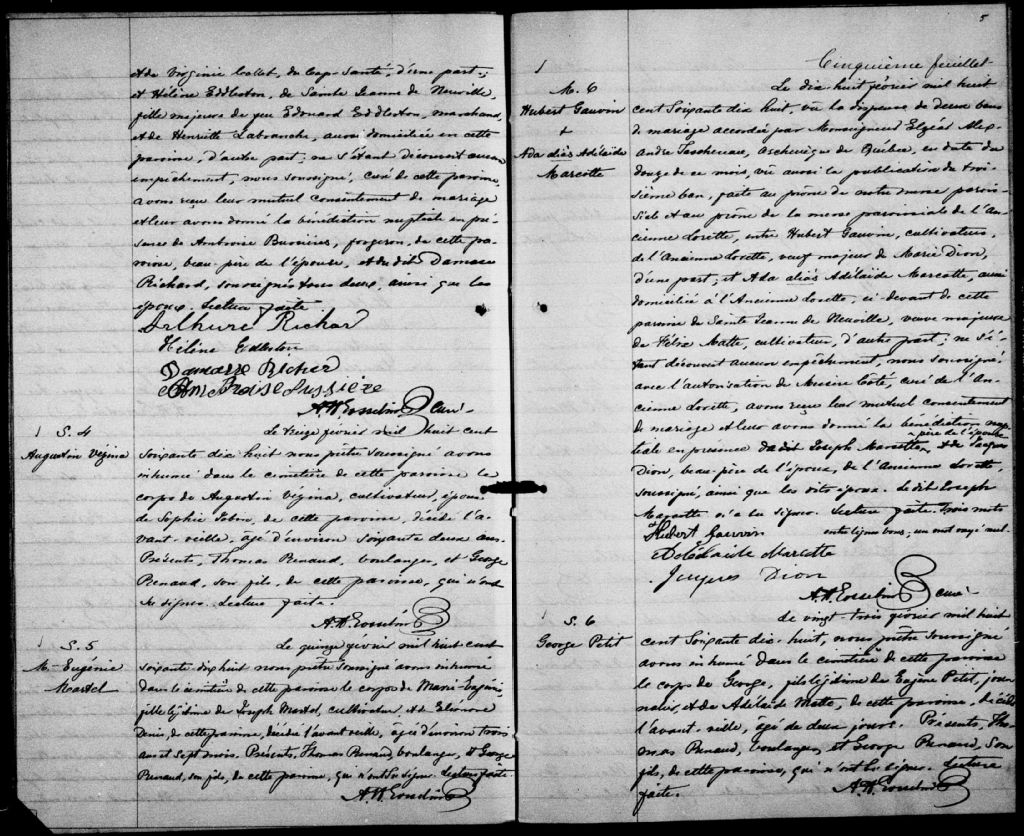 et de Virginie Collet, du Cap-Santé, d'une part;
et Hélène Eddleston, de Sainte Jeanne de Neuville,
fille majeure de feu Edouard Eddleston, marchand,
et de Henriette Labranche, aussi domiciliée en cette
paroisse, d'autre part; ne s'étant découvert aucun
empêchement, nous soussigné, curé de cette paroisse,
avons reçu leur mutuel consentement de mariage
et leur avons donné la bénédiction nuptiale en pré-
sence de Ambroise Bussières, forgeron, de cette pa-
roisse, beau-père de l'épouse, et du dit Damase
Richard, soussignés tous deux, ainsi que les
époux. Lecture faite.
Arthure Richar
Hélène Edleston
Damasse Richar
Ambroise Bussière
curé
1 S. 4
Augustin Vézina
Le treize février mil huit cent
Soixante dix huit nous prêtre Soussigné avons
inhumé dans le cimetière de cette paroisse le
corps de Augustin Vézina, cultivateur, époux
de Sophie de cette paroisse, décédé l'a-
vant-veille, âgé d'environ soixante deux ans.
Présents, Thomas Renaud, boulanger, et George
Renaud, son fils, de cette paroisse, qui n'ont
Su signer. Lecture faite.
1 S. 5
M. Eugénie
Martel
Le quinze février mil huit cent
soixante dix huit nous prêtre Soussigné avons inhumé
dans le cimetière de cette paroisse le corps de Marie-Eugénie,
fille légitime de Joseph Martel, cultivateur, et de Eléonore
Denis, de cette paroisse, décédée l'avant veille, âgée d'environ trois
ans et sept mois. Présents, Thomas Renaud, boulanger, et George
Renaud, son fils, de cette paroisse, qui n'ont Su signer. Lecture faite.
5
Cinquième feuillet
1
M. 6
Hubert Gauvin
+
Ada aliàs Adélaïde
Marcotte
Le dix huit février mil huit
cent Soixante dix huit, vu la dispense de deux bans
de mariage accordée par Monseigneur Elzéar Alex-
andre Taschereau, Archevêque de Québec, en date du
douze de ce mois, vû aussi la publication du troi-
sième ban, faite au prône de notre messe parois-
siale et au prône de la messe paroissiale de l'An-
cienne Lorette, entre Hubert Gauvin, cultivateur,
de l'Ancienne Lorette, veuf majeur de Marie Dion,
d'une part, et Ada aliàs Adélaïde Marcotte, aussi
domiciliée à l'Ancienne Lorette, ci-devant de cette
paroisse de Sainte Jeanne de Neuville, veuve majeure
de Félix Matte, cultivateur, d'autre part; ne s'é-
tant découvert aucun empêchement, nous soussigné
avec l'autorisation de Messire Côté, curé de l'An-
cienne Lorette, avons reçu leur mutuel consentement
de mariage et leur avons donné la bénédiction nup-
tiale en présence du dit Joseph Marcotte, père de l'épouse, et de Jacques
Dion, beau-père de l'époux, de l'Ancienne Lorette,
soussigné, ainsi que les dits époux. Le dit Joseph
Marcotte n'a su signer. Lecture faite. Trois mots
entrelignés bons, un mot rayé nul.
Hubert Gauvin
Adélaide Marcotte
Dion
curé
1 S. 6
George Petit
Le vingt-trois février mil huit
cent Soixante dix-huit, nous prêtre Soussigné
avons inhumé dans le cimetière de cette paroisse
le corps de George, fils légitime de Eugène Petit, jour-
nalier, et de Adélaïde Matte, de cette paroisse, décédé
l'avant-veille, âgé de deux jours. Présents, Tho-
mas Renaud, boulanger, et George Renaud, Son
fils, de cette paroisse, qui n'ont Su signer. Lecture
faite.